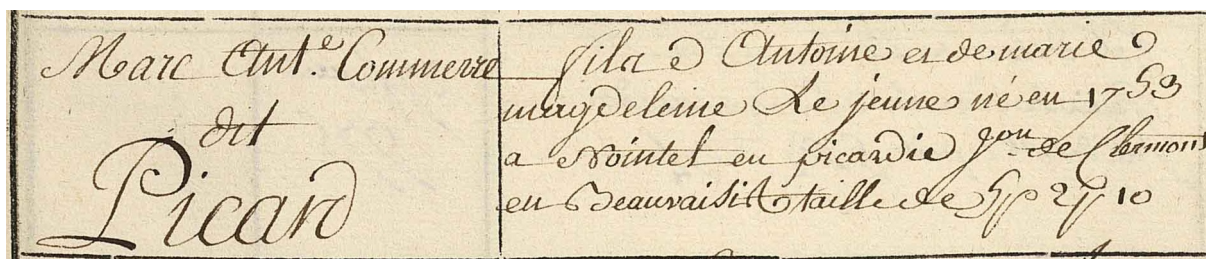 Marc Ant.e Commerre
dit
Picard
fils d Antoine et de marie
magdeleine Le jeune né en 1753
a Nointel en picardie J.on de Clermont
en Beauvaisis taille de 5p 2p 10